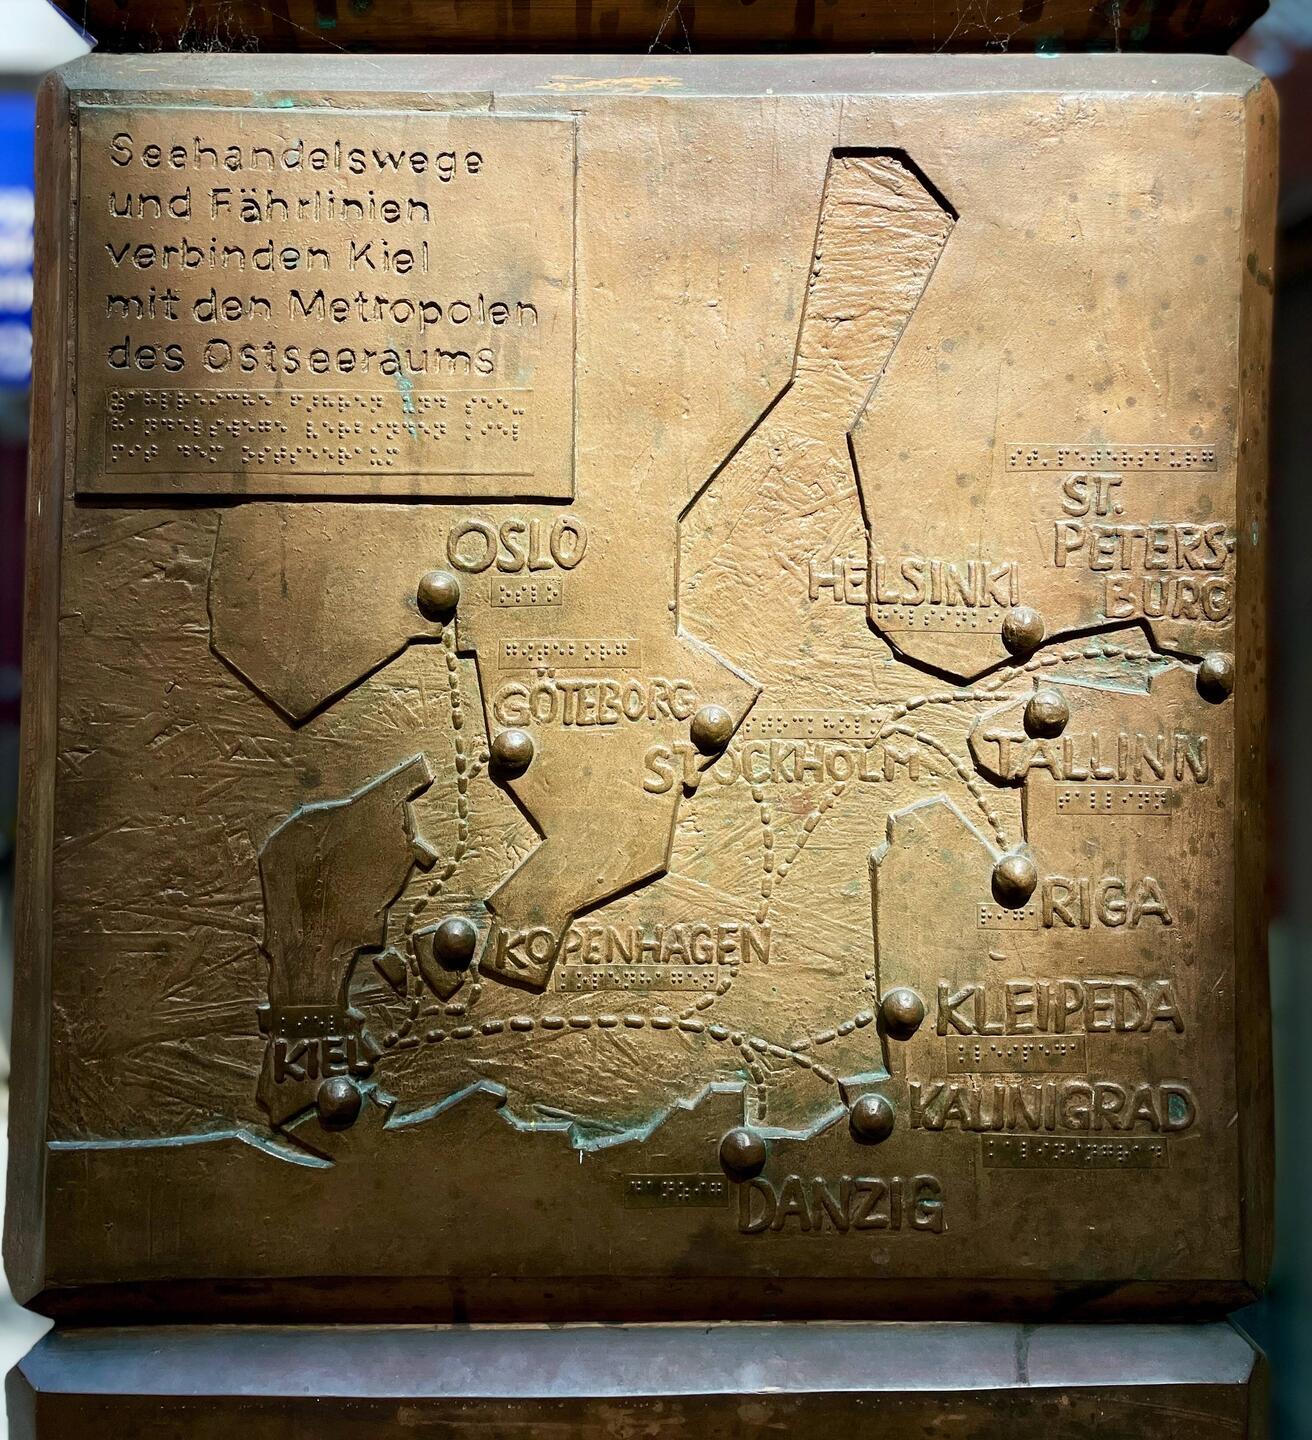 Seehandelswege
und Fährlinien
verbinden Kiel
mit den Metropolen
des Ostseeraums
OSLO
ST.
PETERS-
BURG
HELSINKI
GÖTEBORG
STOCKHOLM
TALLINN
RIGA
KOPENHAGEN
KLEIPEDA
KIEL
KALINIGRAD
DANZIG